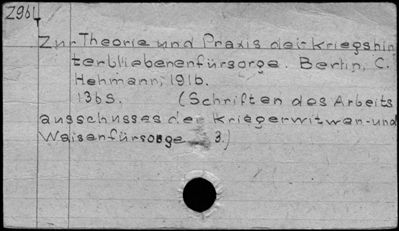 Z961
Zur Theorie und Praxis der Kriegshin
terbliebenenfürsorge. Berlin, C.
Hehmann, 1916.
136S. (Schriften des Arbeits
ausschusses der Kriegerwitwen-und
Waisenfürsorge 3.)